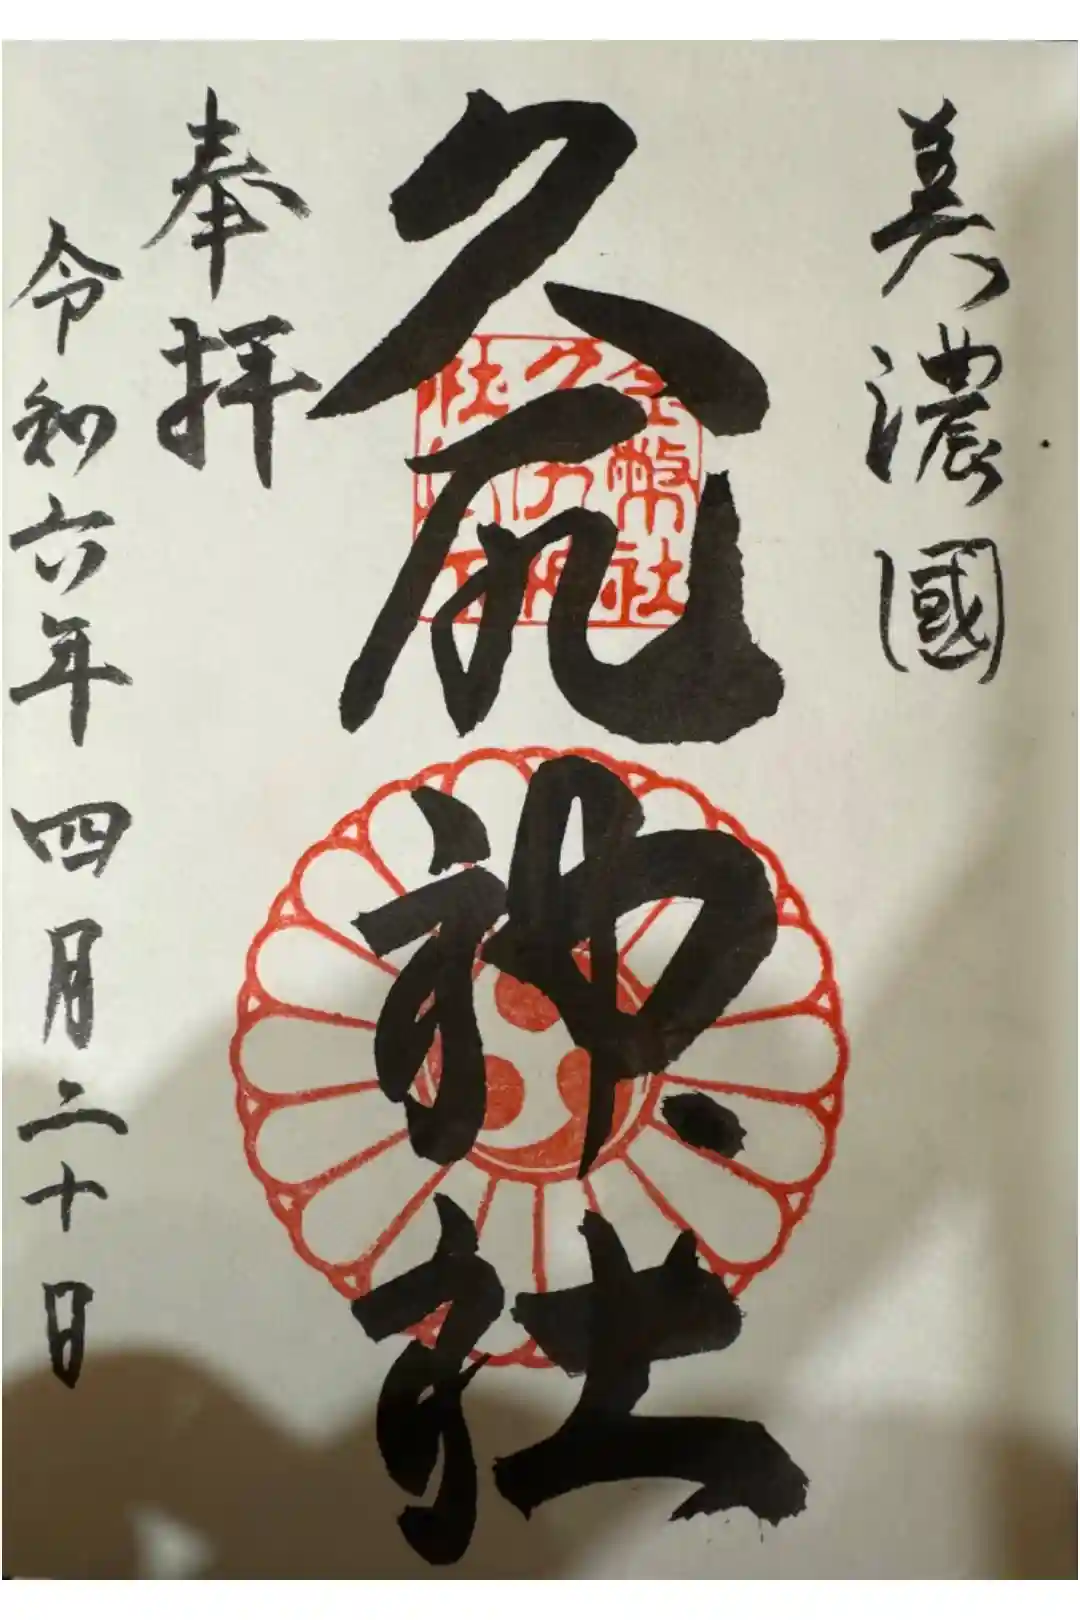 美濃國
久尻神社
金幣社
奉拝
令和六年 四月二十日